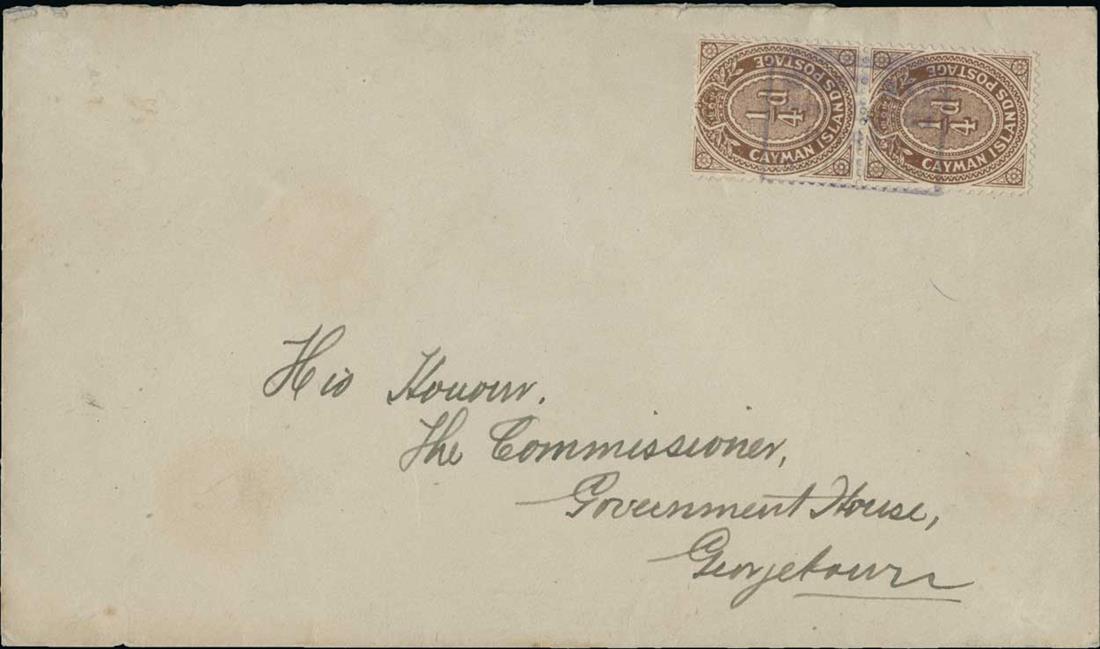 CAYMAN ISLANDS POSTAGE
1/4 d
CAYMAN ISLANDS POSTAGE
1/4 d
His Honour,
The Commissioner,
Government House,
Georgetown